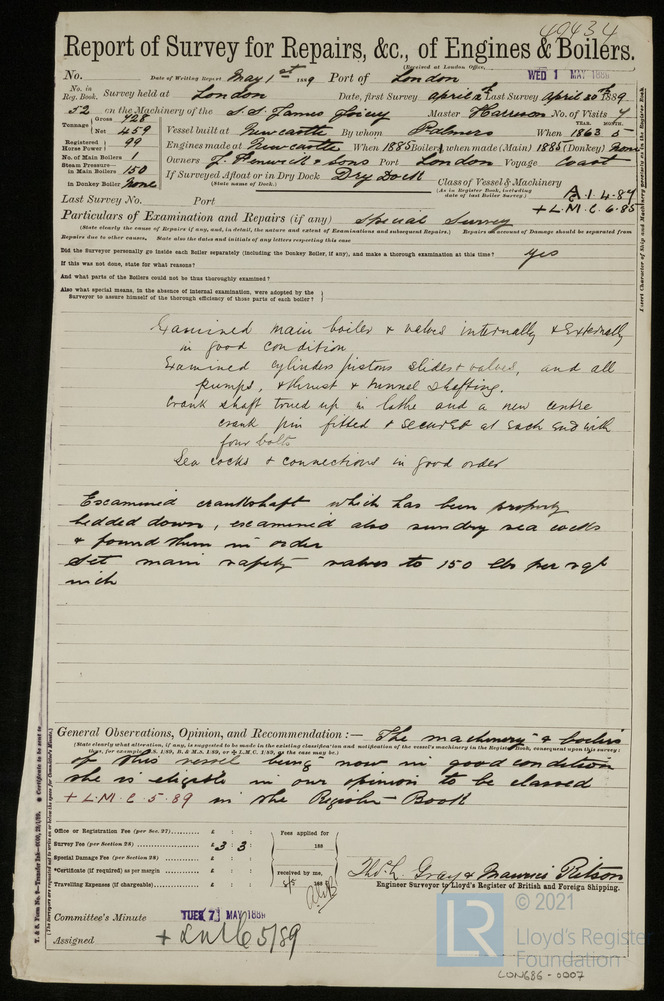 49434
Report of Survey for Repairs, &c., of Engines & Boilers.
(Received at London Office,
No. Date of Writing Report May 1st 1889 Port of London WED 1 MAY 1889
No. in Reg. Book. Survey held at London Date, first Survey April Last Survey April 30th 1889
52 on the Machinery of the S.S. James Joicey Master Harrison No. of Visits 7
Tonnage Gross 728 Net 459 Vessel built at Newcastle By whom Palmers When 1863 5
YEAR. MONTH.
Registered Horse Power 99 Engines made at Newcastle When 1885 Boiler, when made (Main) 1886 (Donkey) None
No. of Main Boilers 1 Owners J. Fenwick & Sons Port London Voyage Coast
Steam Pressure in Main Boilers 150 If Surveyed Afloat or in Dry Dock Dry Dock
in Donkey Boiler None (State name of Dock.)
Class of Vessel & Machinery
(As in Register Book, including date of last Boiler Survey.)
A.1.4.89
+ L.M.C. 6.85
Last Survey No. Port
Particulars of Examination and Repairs (if any) Special Survey
(State clearly the cause of Repairs if any, and, in detail, the nature and extent of Examinations and subsequent Repairs.) Repairs on account of Damage should be separated from
Repairs due to other causes. State also the dates and initials of any letters respecting this case
Did the Surveyor personally go inside each Boiler separately (including the Donkey Boiler, if any), and make a thorough examination at this time? yes
If this was not done, state for what reasons?
And what parts of the Boilers could not be thus thoroughly examined?
Also what special means, in the absence of internal examination, were adopted by the
Surveyor to assure himself of the thorough efficiency of those parts of each boiler?
Examined main boiler & valves internally & externally
in good condition
Examined cylinders pistons slides & valves, and all
pumps, & thrust & tunnel shafting.
Crank shaft trued up in lathe and a new centre
crank pin fitted & secured at each end with
four bolts
Sea cocks & connections in good order
Examined crankshaft which has been properly
bedded down, examined also sundry sea cocks
& found them in order
Set main safety valves to 150 lbs per sqr
inch
General Observations, Opinion, and Recommendation :— The machinery & boilers
(State clearly what alteration, if any, is suggested to be made in the existing classification and notification of the vessel's machinery in the Register Book, consequent upon this survey:
thus, for example, B.S. 1/89, B. & M.S. 1/89, or + L.M.C. 1/89, as the case may be.)
of this vessel being now in good condition
she is eligible in our opinion to be classed
+ L.M.C 5.89 in the Register Book
Office or Registration Fee (per Sec. 27) £ : : Fees applied for
Survey Fee (per Section 28) £ 3 : 3 : 188
Special Damage Fee (per Section 28) £ : :
*Certificate (if required) as per margin £ : : received by me,
Travelling Expenses (if chargeable) £ : : 8/5 188
Thos. L. Gray & Maurice Ritson
Engineer Surveyor to Lloyd's Register of British and Foreign Shipping.
Committee's Minute TUES 7 MAY 1889
Assigned + LMC 5/89
© 2021
LR
Lloyd's Register
Foundation
LON686-0007